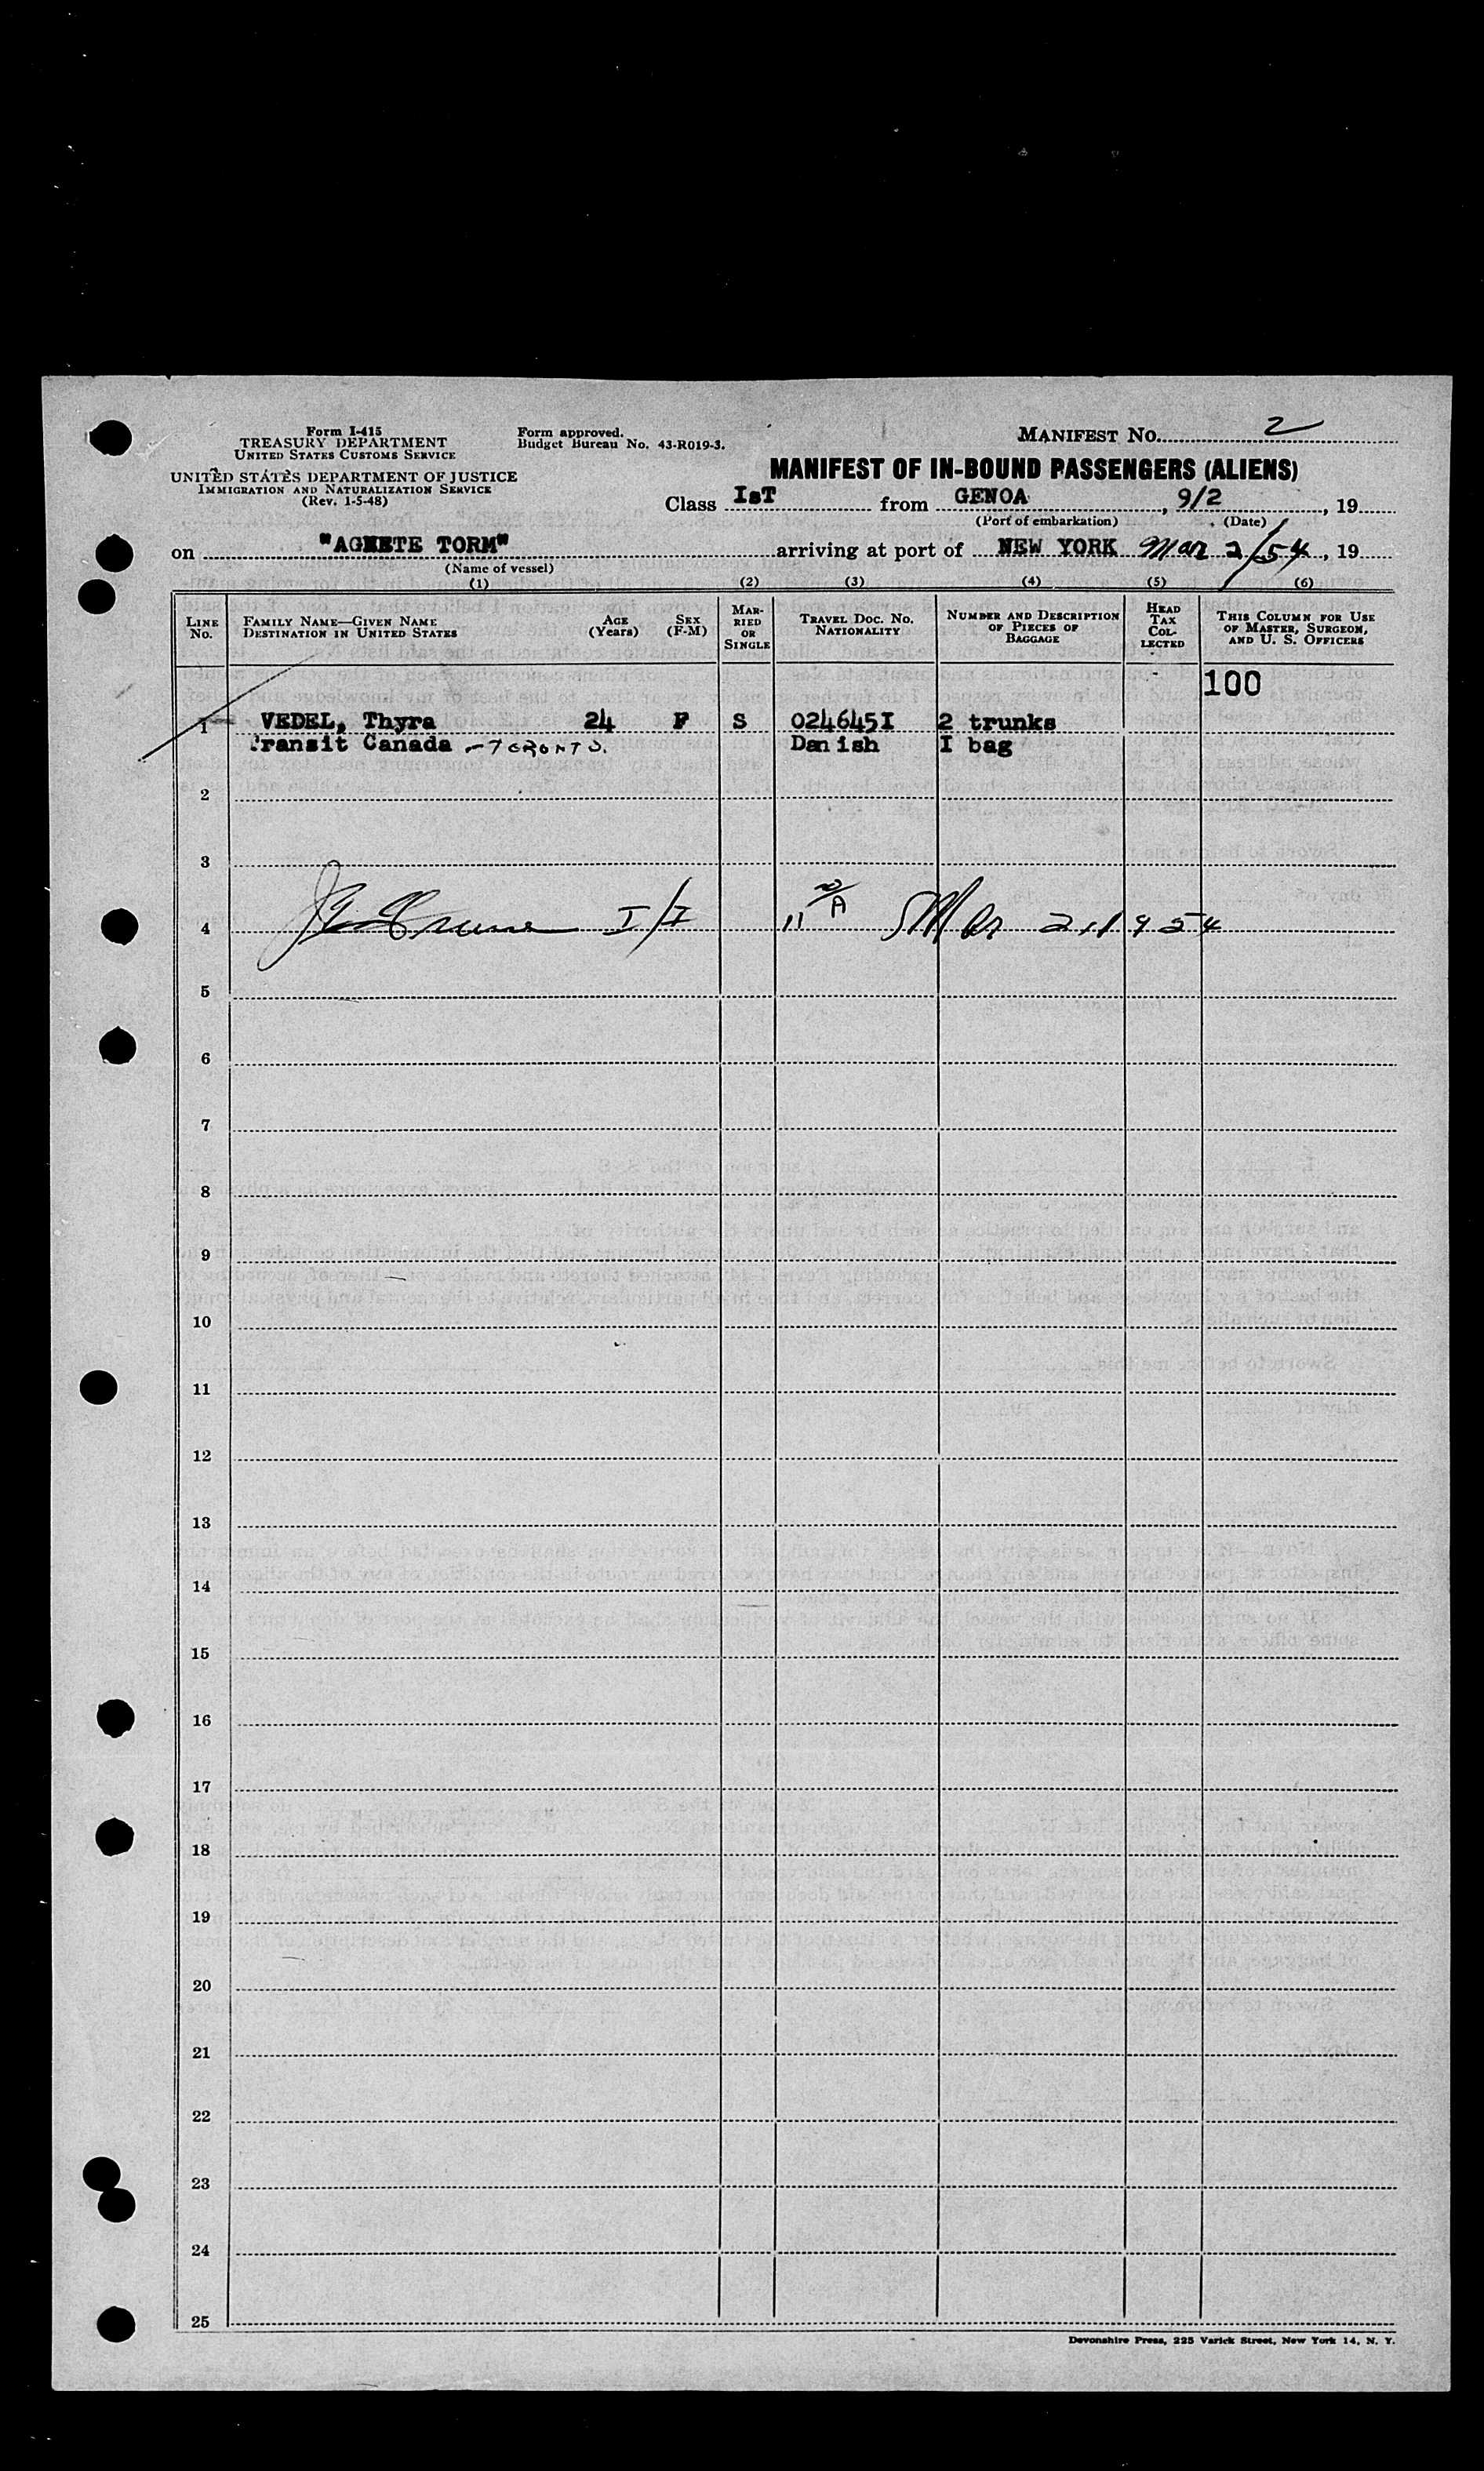 Form I-415
TREASURY DEPARTMENT
UNITED STATES CUSTOMS SERVICE
UNITED STATES DEPARTMENT OF JUSTICE
IMMIGRATION AND NATURALIZATION SERVICE
(Rev. 1-5-48)
Form approved.
Budget Bureau No. 43-R019-3.
MANIFEST No. 2
MANIFEST OF IN-BOUND PASSENGERS (ALIENS)
Class IsT from GENOA, 9/2, 19
(Port of embarkation) (Date)
on "AGNETE TORM" arriving at port of NEW YORK Mar 2/54, 19
(Name of vessel)
(1) (2) (3) (4) (5) (6)
LINE No. FAMILY NAME—GIVEN NAME DESTINATION IN UNITED STATES AGE (Years) SEX (F-M) MARRIED OR SINGLE TRAVEL DOC. No. NATIONALITY NUMBER AND DESCRIPTION OF PIECES OF BAGGAGE HEAD TAX COLLECTED THIS COLUMN FOR USE OF MASTER, SURGEON, AND U. S. OFFICERS
100
1 VEDEL, Thyra 24 F S 024645I 2 trunks
Transit Canada - TORONTO. Danish I bag
2
3
4 I/I 11 Mar 2, 1954
5
6
7
8
9
10
11
12
13
14
15
16
17
18
19
20
21
22
23
24
25
Devonshire Press, 225 Varick Street, New York 14, N. Y.